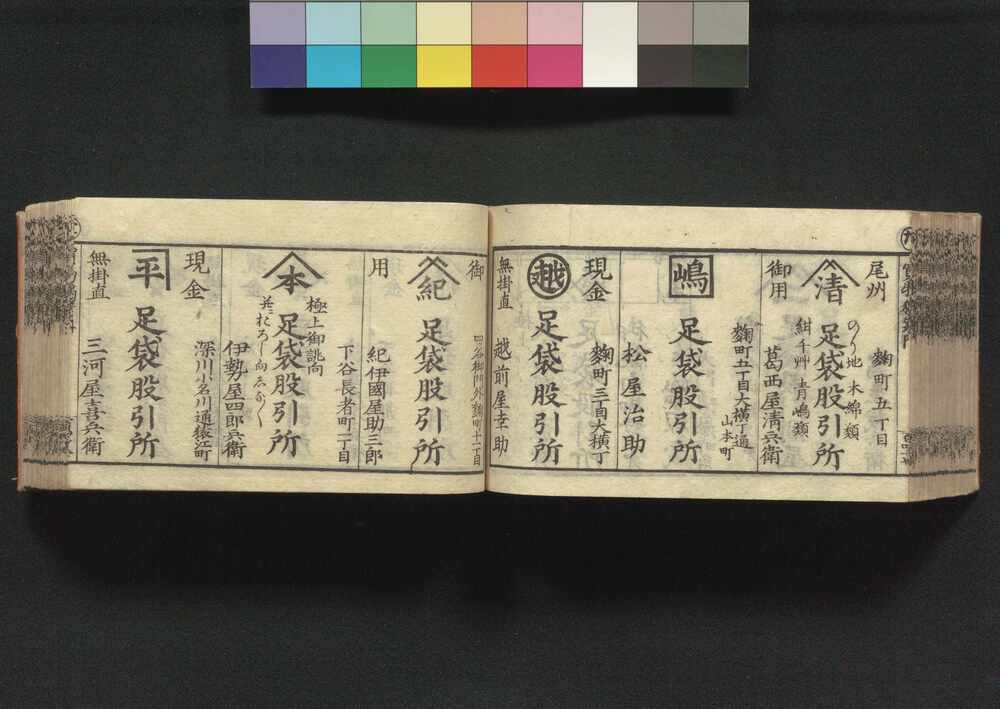 尾州
麹町五丁目
清
足袋股引所
のり地 木綿類
紺千艸 青嶋類
御用
葛西屋清兵衛
麹町五丁目大横丁通
山本町
嶋
足袋股引所
松屋治助
現金
麹町三丁目大横丁
越
足袋股引所
無掛直
越前屋幸助
御
四ツ谷御門外麹町十一丁目
紀
足袋股引所
用
紀伊國屋助三郎
下谷長者町一丁目
極上御誂向
本
足袋股引所
伊勢屋四郎兵衛
現金
深川小名川通猿江町
平
足袋股引所
無掛直
三河屋喜兵衛